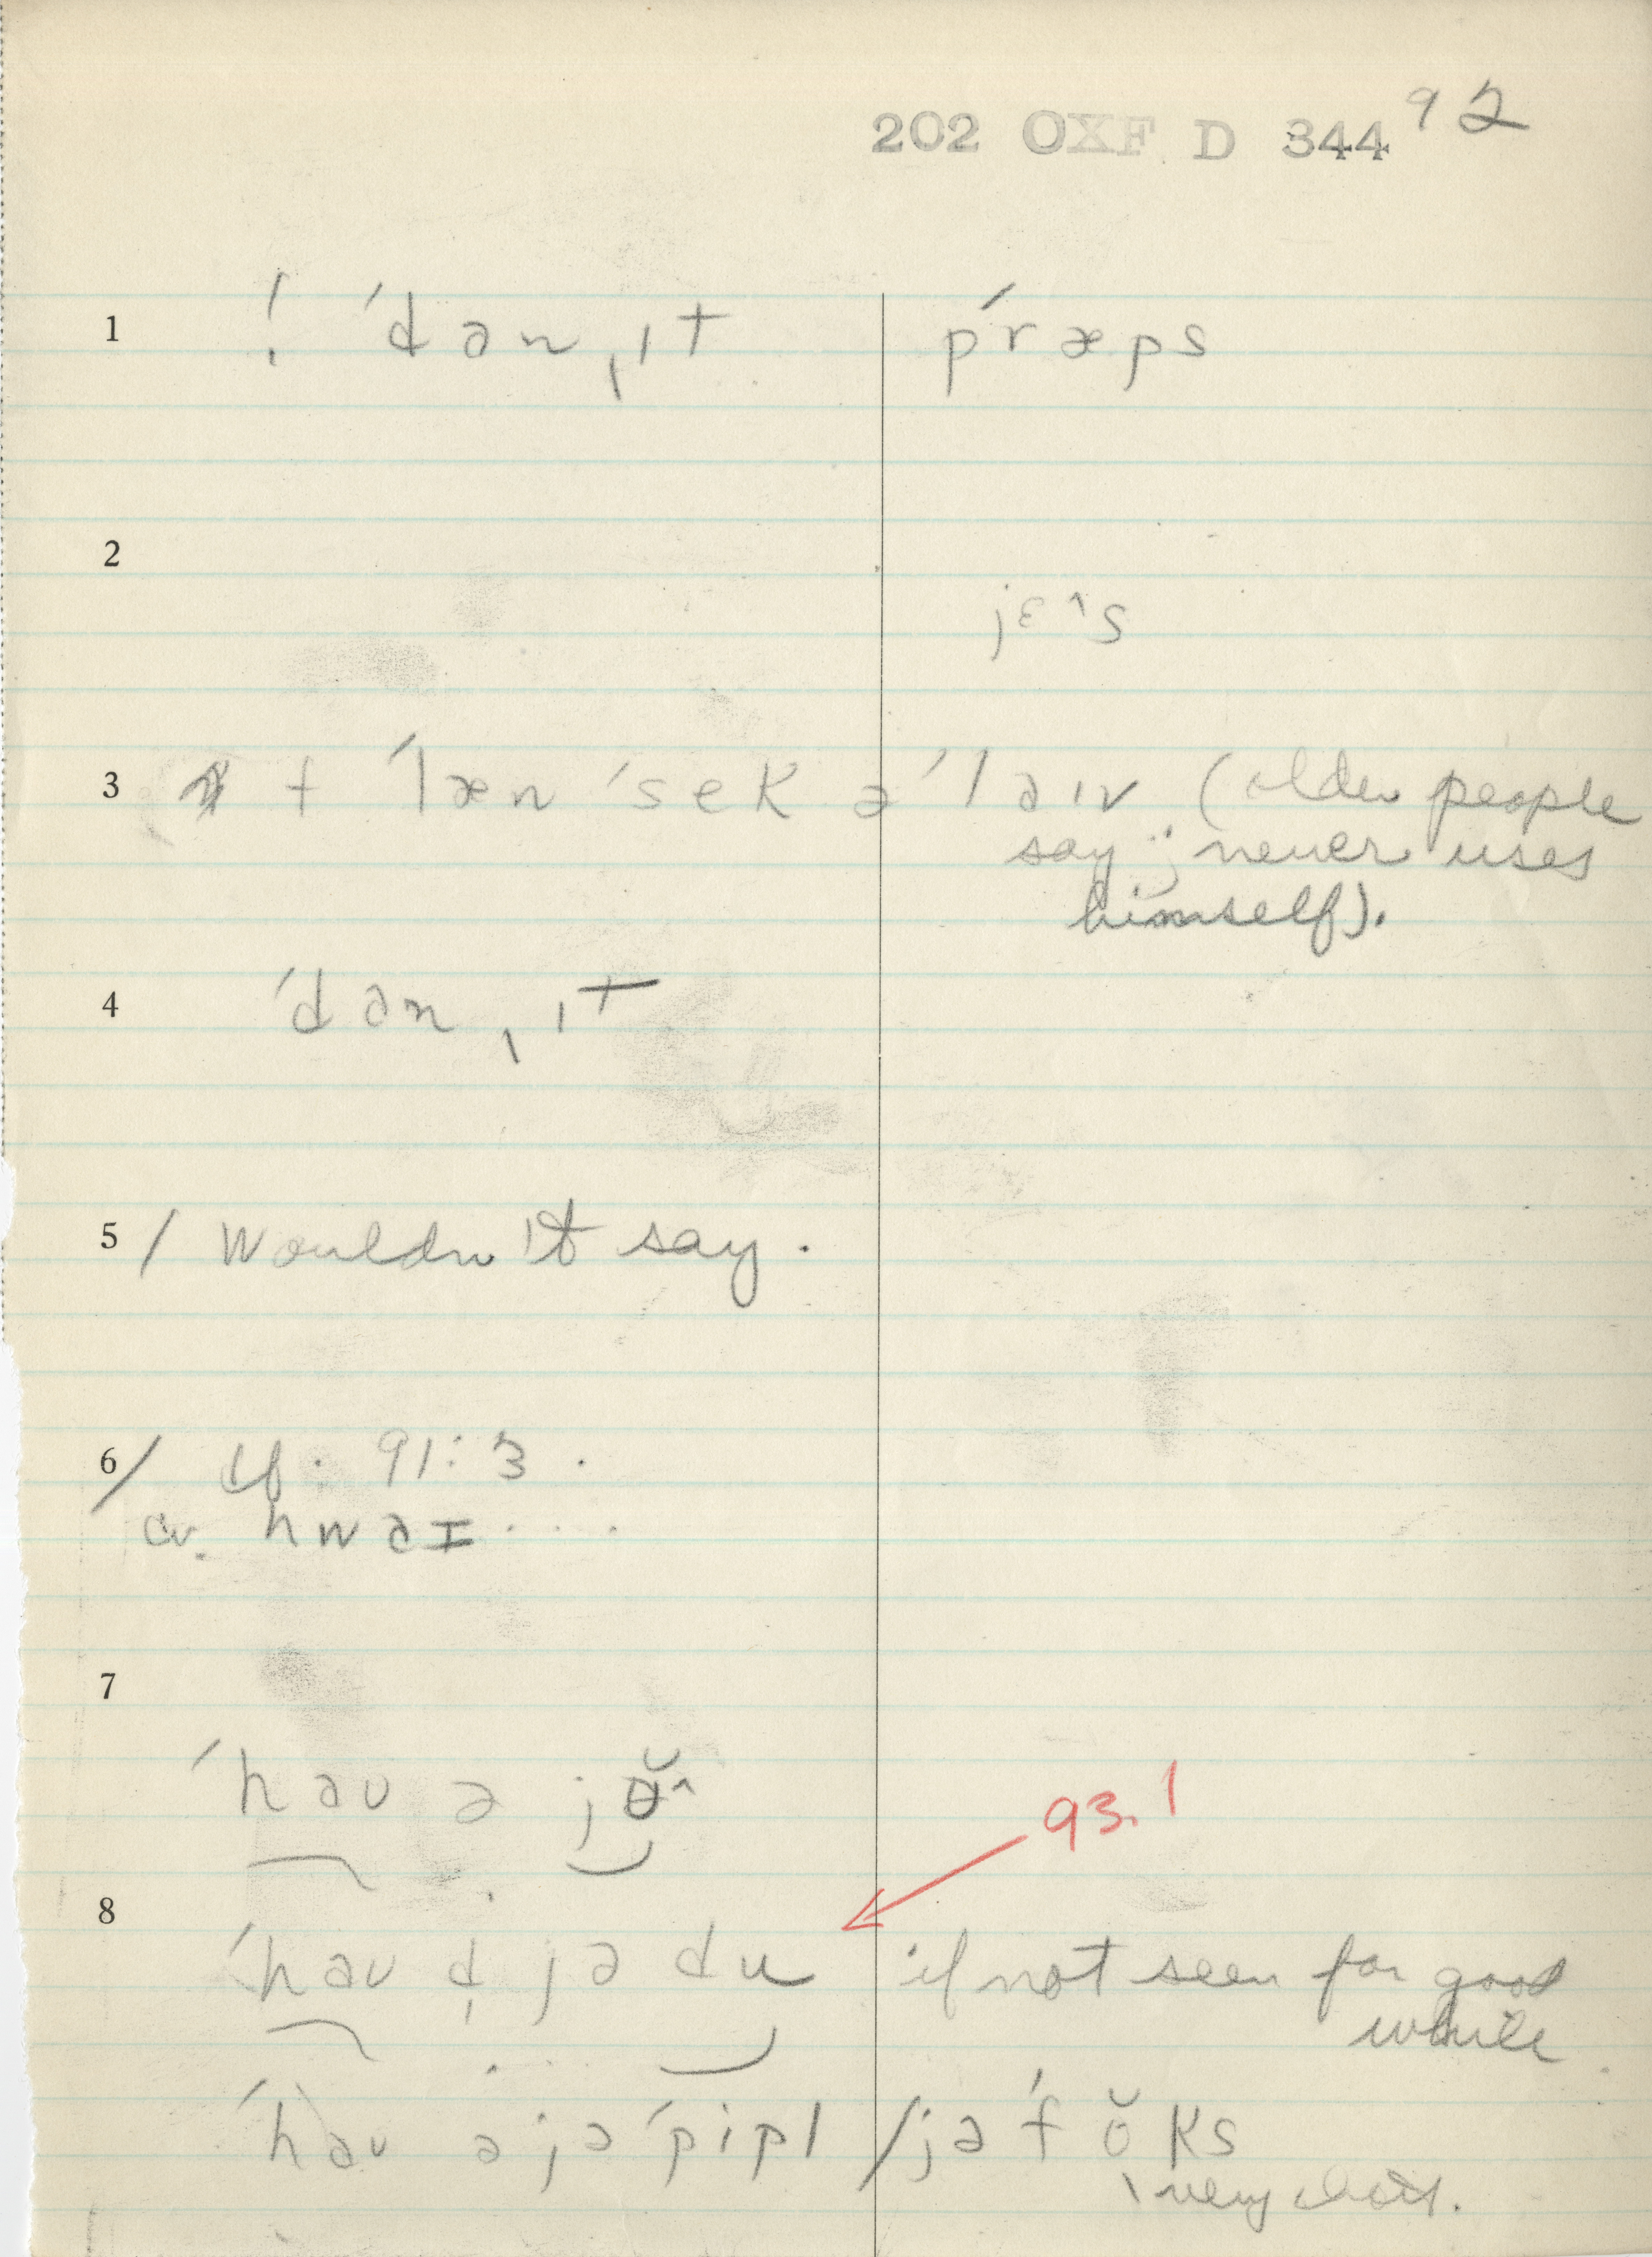 202 OXF D 344 92
1 ! ˊdən̩ˌɪt pˊræps
2
jɛ^s
3 † ˊlæn ˊsek əˊləɪv (older people
say ; never uses
himself).
4 ˊdənˌɪt
5 / Wouldn't say.
6 / cf. 91:3.
cv. hwəɪ....
7
ˊhaʊ ə jʉ̆^
93.1
8
ˊhəʊ d jə du if not seen for good
while.
ˊhəʊ ə jə ˊpipl / jə ˊfŏks
very short.